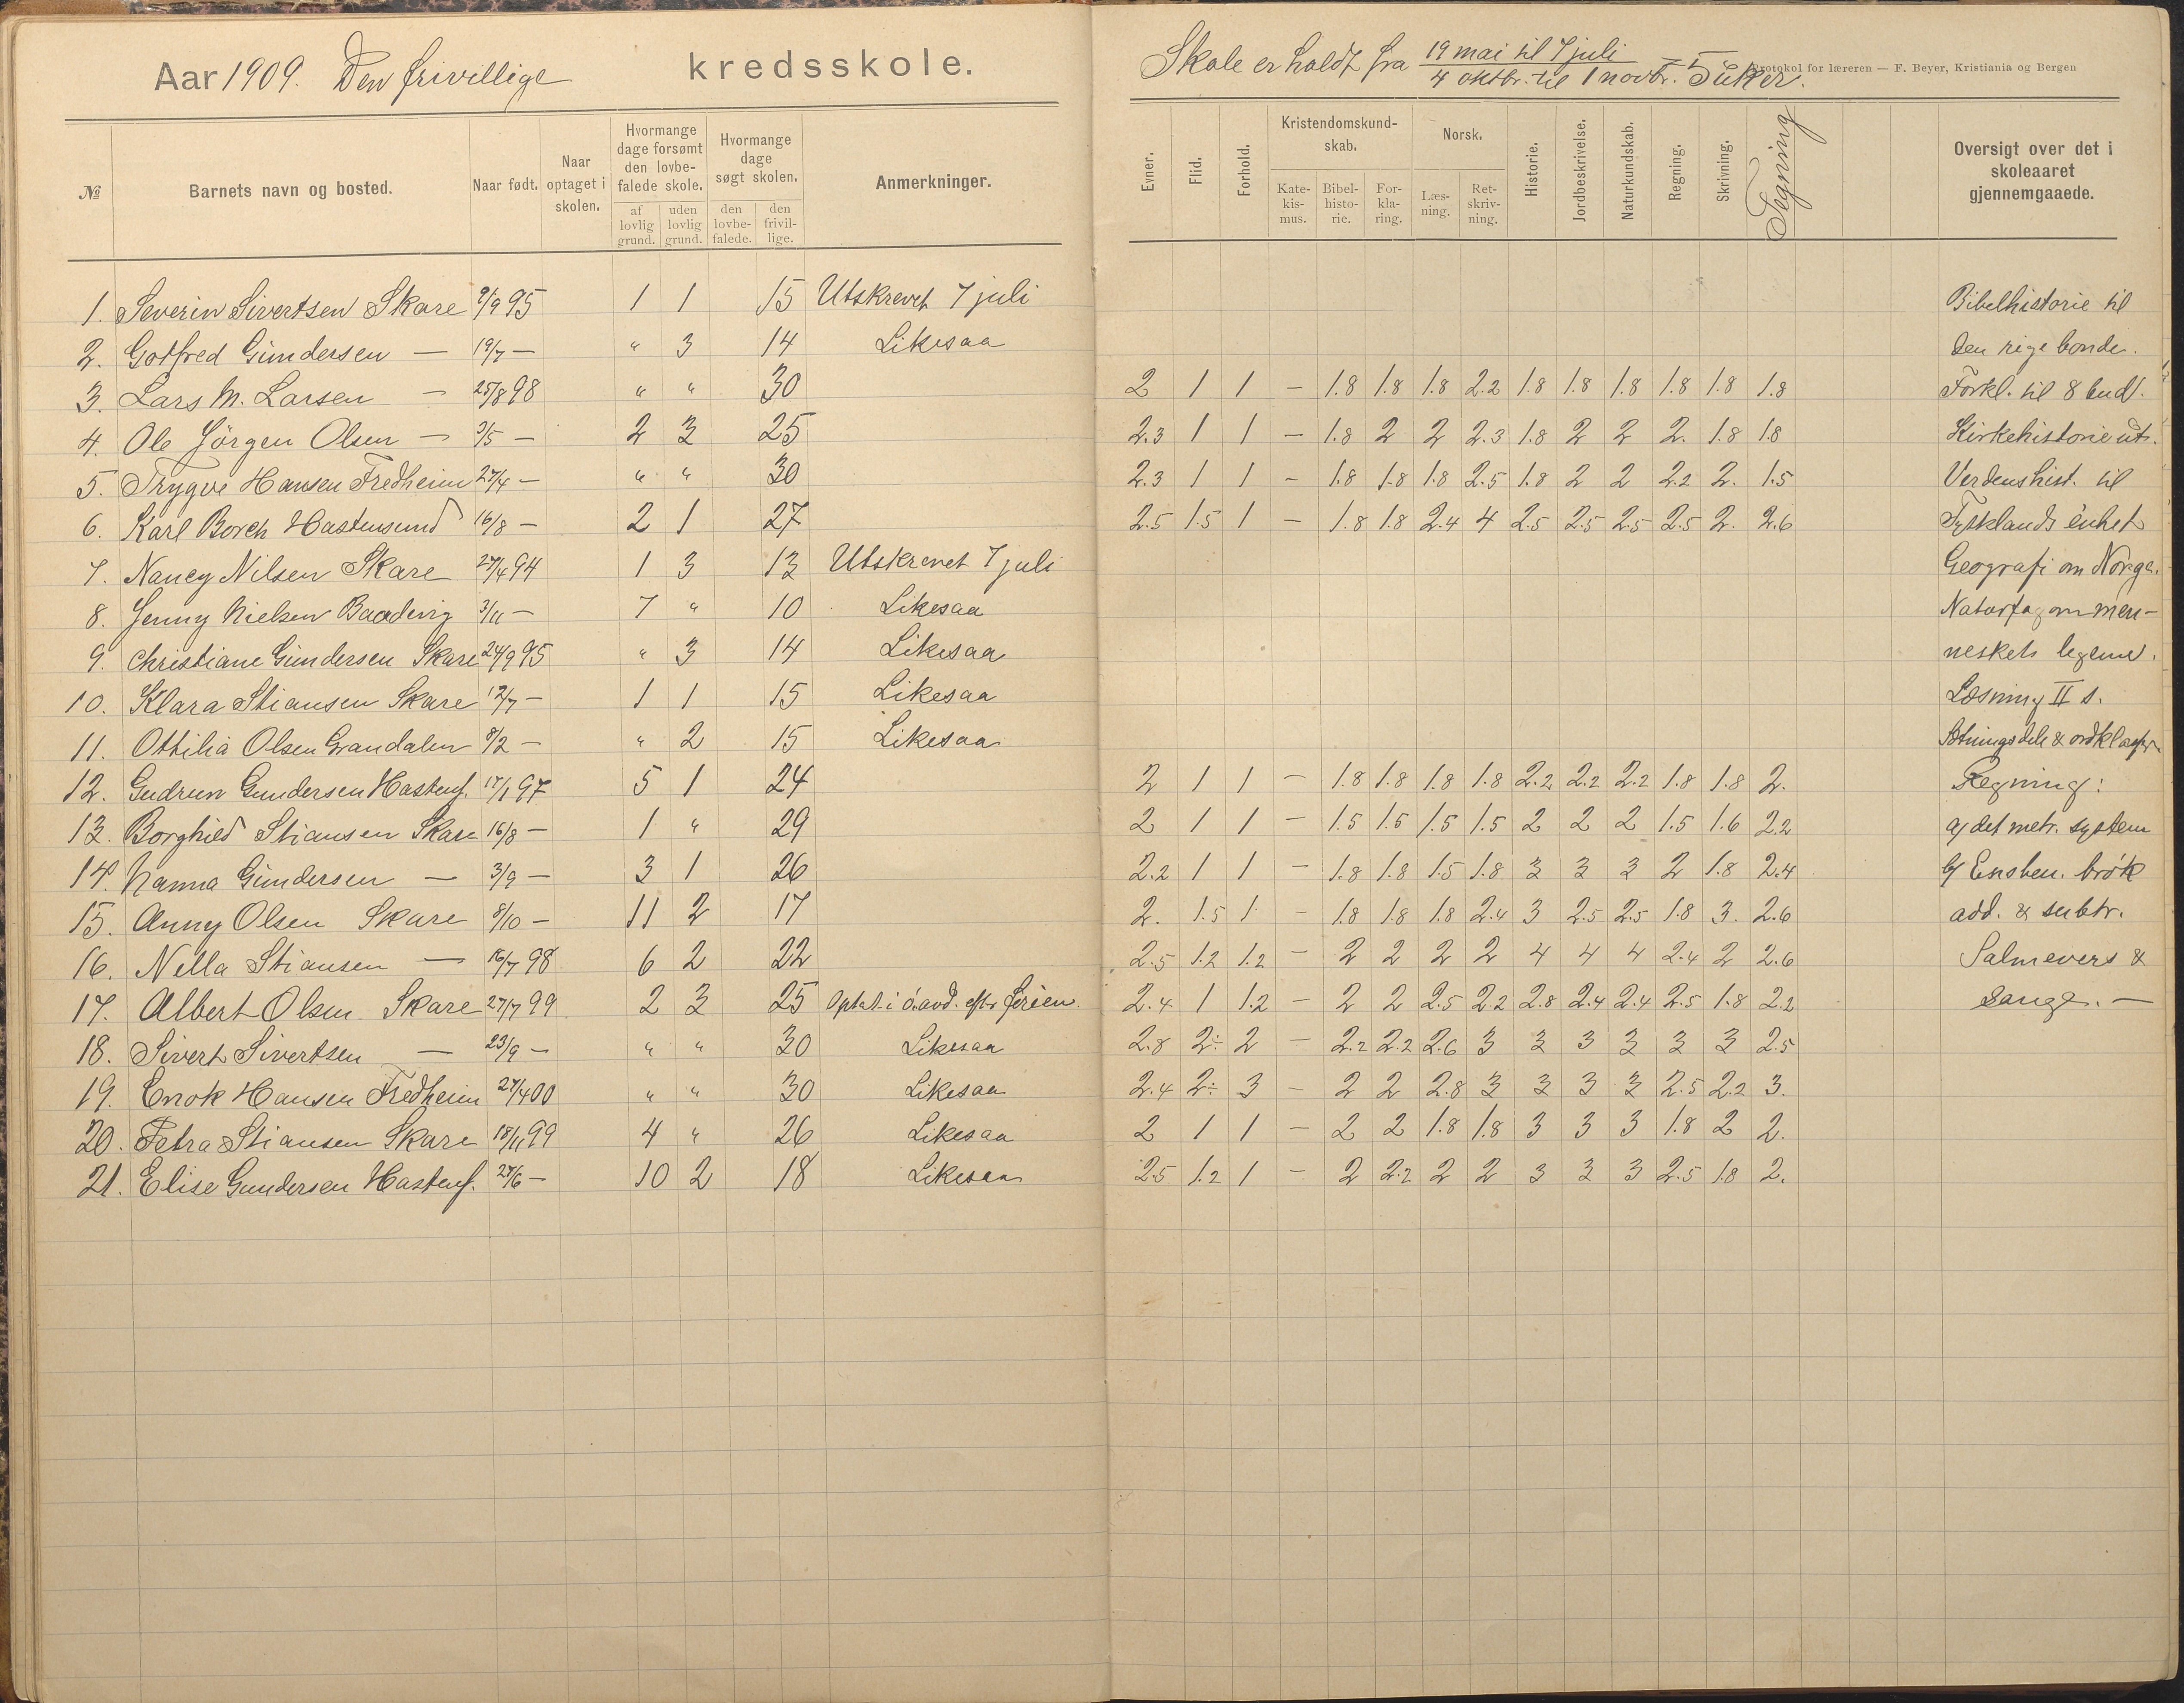 Aar 1909. Den frivillige kredsskole.
№ Barnets navn og bosted. Naar født. Naar optaget i skolen. Hvormange dage forsømt den lovbefalede skole. af lovlig grund. uden lovlig grund. Hvormange dage søgt skolen. den lovbefalede. den frivillige. Anmerkninger.
1. Severin Sivertsen Skare 9/9 95 1 1 15 Utskrevet 7 juli
2. Gotfred Gundersen — 19/7 — " 3 14 Likesaa
3. Lars M. Larsen — 25/8 98 " " 30
4. Ole Jörgen Olsen — 3/5 — 2 3 25
5. Trygve Hansen Fredheim 27/4 — " " 30
6. Karl Borch Hastensund 16/8 — 2 1 27
7. Nancy Nilsen Skare 27/4 94 1 3 13 Utskrevet 7 juli
8. Jenny Nielsen Baadevig 3/11 — 7 " 10 Likesaa
9. Christiane Gundersen Skare 24/9 95 " 3 14 Likesaa
10. Klara Stiansen Skare 12/7 — 1 1 15 Likesaa
11. Othilia Olsen Grandalen 8/2 — " 2 15 Likesaa
12. Gudrun Gundersen Hastensf. 17/1 97 5 1 24
13. Borghild Stiansen Skare 16/8 — 1 " 29
14. Nanna Gundersen — 3/9 — 3 1 26
15. Anny Olsen Skare 8/10 — 11 2 17
16. Nella Stiansen — 16/7 98 6 2 22
17. Albert Olsen Skare 27/7 99 2 3 25 Optat. i ö. avd. eftr ferien.
18. Sivert Sivertsen — 23/9 — " " 30 Likesaa
19. Enok Hansen Fredheim 27/4 00 " " 30 Likesaa
20. Petra Stiansen Skare 18/11 99 4 " 26 Likesaa
21. Elise Gundersen Hastensf. 27/6 — 10 2 18 Likesaa
Skole er holdt fra 19 mai til 7 juli
4 oktbr. til 1 novbr. = 5 uker.
Protokol for læreren — F. Beyer, Kristiania og Bergen
Evner. Flid. Forhold. Kristendomskundskab. Katekismus. Bibelhistorie. Forklaring. Norsk. Læsning. Retskrivning. Historie. Jordbeskrivelse. Naturkundskab. Regning. Skrivning. Tegning Oversigt over det i skoleaaret gjennemgaaede.
Bibelhistorie til
den rige bonde.
2 1 1 — 1.8 1.8 1.8 2.2 1.8 1.8 1.8 1.8 1.8 1.8 Forkl. til 8 bud.
2.3 1 1 — 1.8 2 2 2.3 1.8 2 2 2. 1.8 1.8 Kirkehistorie ut.
2.3 1 1 — 1.8 1.8 1.8 2.5 1.8 2 2 2.2 2. 1.5 Verdenshist. til
2.5 1.5 1 — 1.8 1.8 2.4 4 2.5 2.5 2.5 2.5 2. 2.6 Tysklands enhet
Geografi om Norge.
Naturfag om men-
neskets legeme.
Læsning II s.
Sætningsdele & ordklasser
2 1 1 — 1.8 1.8 1.8 1.8 2.2 2.2 2.2 1.8 1.8 2. Regning:
2 1 1 — 1.5 1.5 1.5 1.5 2 2 2 1.5 1.6 2.2 a/ det metr. system
2.2 1 1 — 1.8 1.8 1.5 1.8 3 3 3 2 1.8 2.4 b/ Ensben. brök
2. 1.5 1 — 1.8 1.8 1.8 2.4 3 2.5 2.5 1.8 3. 2.6 add. & subtr.
2.5 1.2 1.2 — 2 2 2 2 4 4 4 2.4 2 2.6 Salmevers &
2.4 1 1.2 — 2 2 2.5 2.2 2.8 2.4 2.4 2.5 1.8 2.2 sange. —
2.8 2÷ 2 — 2.2 2.2 2.6 3 3 3 3 3 3 2.5
2.4 2÷ 3 — 2 2 2.8 3 3 3 3 2.5 2.2 3.
2 1 1 — 2 2 1.8 1.8 3 3 3 1.8 2 2.
2.5 1.2 1 — 2 2.2 2 2 3 3 3 2.5 1.8 2.